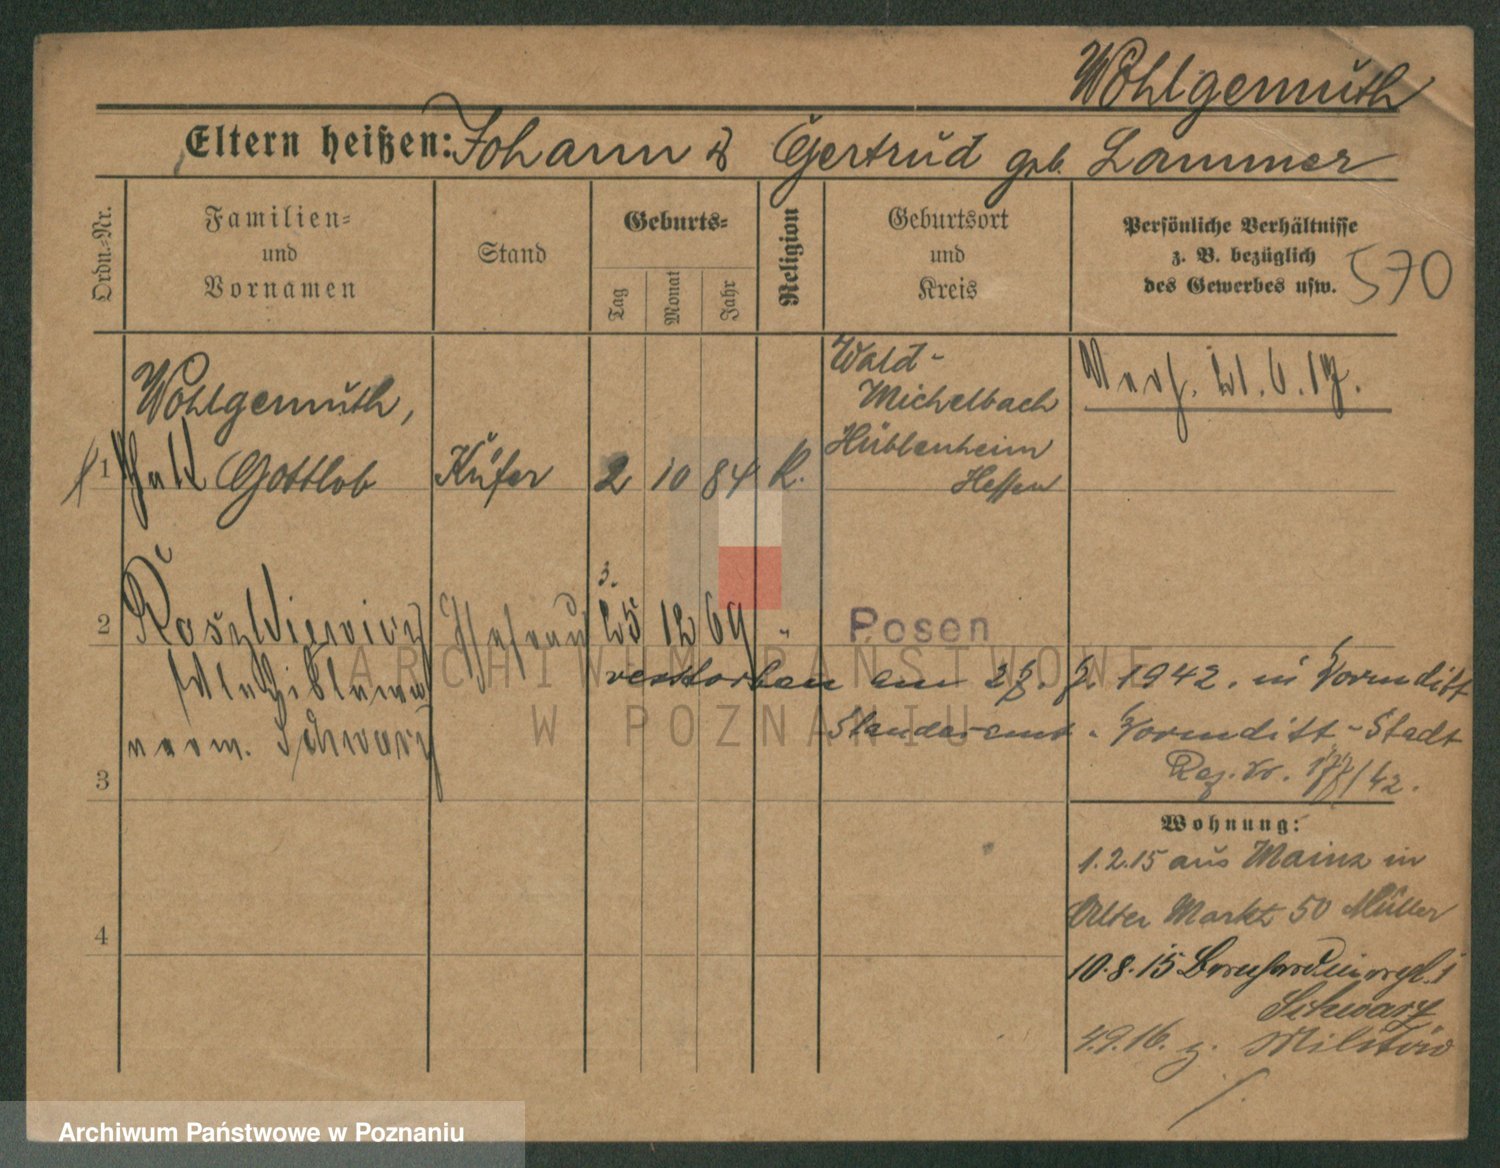 Wohlgemuth
Eltern heißen: Johann & Gertrud geb. Lammer
Ordn.-Nr.
Familien-
und
Vornamen
Stand
Geburts-
Tag
Monat
Jahr
Religion
Geburtsort
und
Kreis
Persönliche Verhältnisse
z. B. bezüglich
des Gewerbes usw.
570
Wohlgemuth,
1 Gottlob
Küfer
2 10 84 K.
Wald-
Michelbach
Hessen
21.6.17.
2
Ehefrau
3.
25 12 69 "
Posen
verw. Schwarz
verstorben am 1942. in Wormditt
Standesamt Wormditt-Stadt
Reg. Nr. 177/42.
3
4
Wohnung:
1.2.15 aus Mainz in
Alter Markt 50 Müller
10.8.15
Schwarz
4.9.16. z. Militär
ARCHIWUM PAŃSTWOWE
W POZNANIU
Archiwum Państwowe w Poznaniu